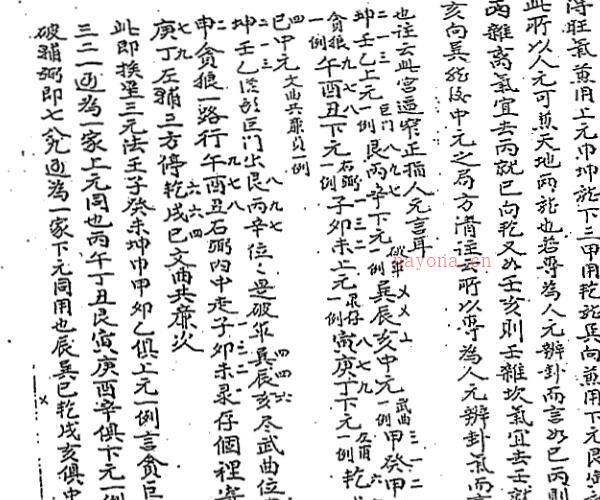 得旺氣兼用上元巾坤龍下三甲用乾龍與向兼用下元艮
此所以人元可兼天地兩龍也若專為人元辨卦而言如巳丙則
丙雜离氣宜去丙就巳向乾又如壬亥則壬雜坎氣宜去壬就
亥向巽龍後中元之局方清註云所以專為人元辨卦氣而
也註云此宮逼窄正指人元言耳
坤壬乙上元一例 巨门 艮丙辛下元一例 破軍 巽辰亥中元 武曲 甲癸申
貪狼一例 午酉丑下元一例 右弼 子卯未上元一例 录存 寅庚丁下元一例 左甫 乾
巳中元 文曲共廉貞一例
坤壬乙 巨门出艮丙辛位〻是破軍巽辰亥尽武曲位
申貪狼一路行午酉丑右弼内中走子卯未录存個裡
庚丁左輔三方停乾戌巳文曲共廉次
此即挨星三元法壬子癸未坤巾甲卯乙俱上元一例言貪巨
三二一逓為一家上元同也丙午丁丑艮寅庚酉辛俱下元一例
破輔弼即七八九逓為一家下元同用也辰巽巳乾戌亥俱中
nayona.cn